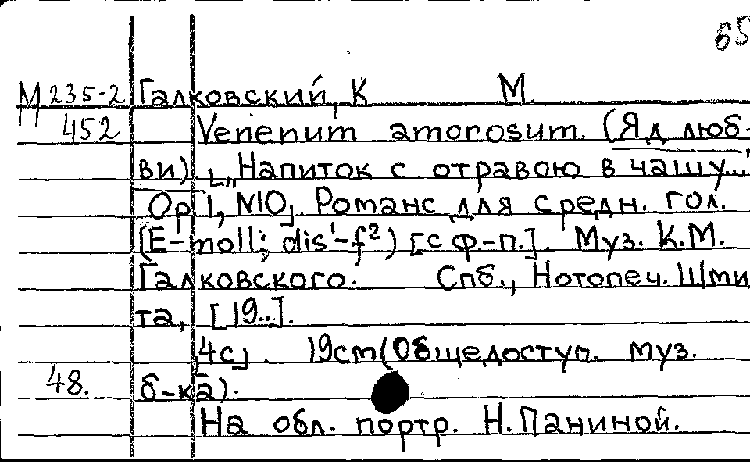 65
М 235-2 Галковский, К М.
452 Venenum amorosum. (Яд люб-
ви) [„Напиток с отравою в чашу..."
Op 1, N10]. Романс для средн. гол.
(E-moll; dis¹-f²) [с ф-п.]. Муз. К.М.
Галковского. Спб., Нотопеч. Шми
та, [19..].
4с]. 19cm (Общедоступ. муз.
48. б-ка).
На обл. портр. Н. Паниной.